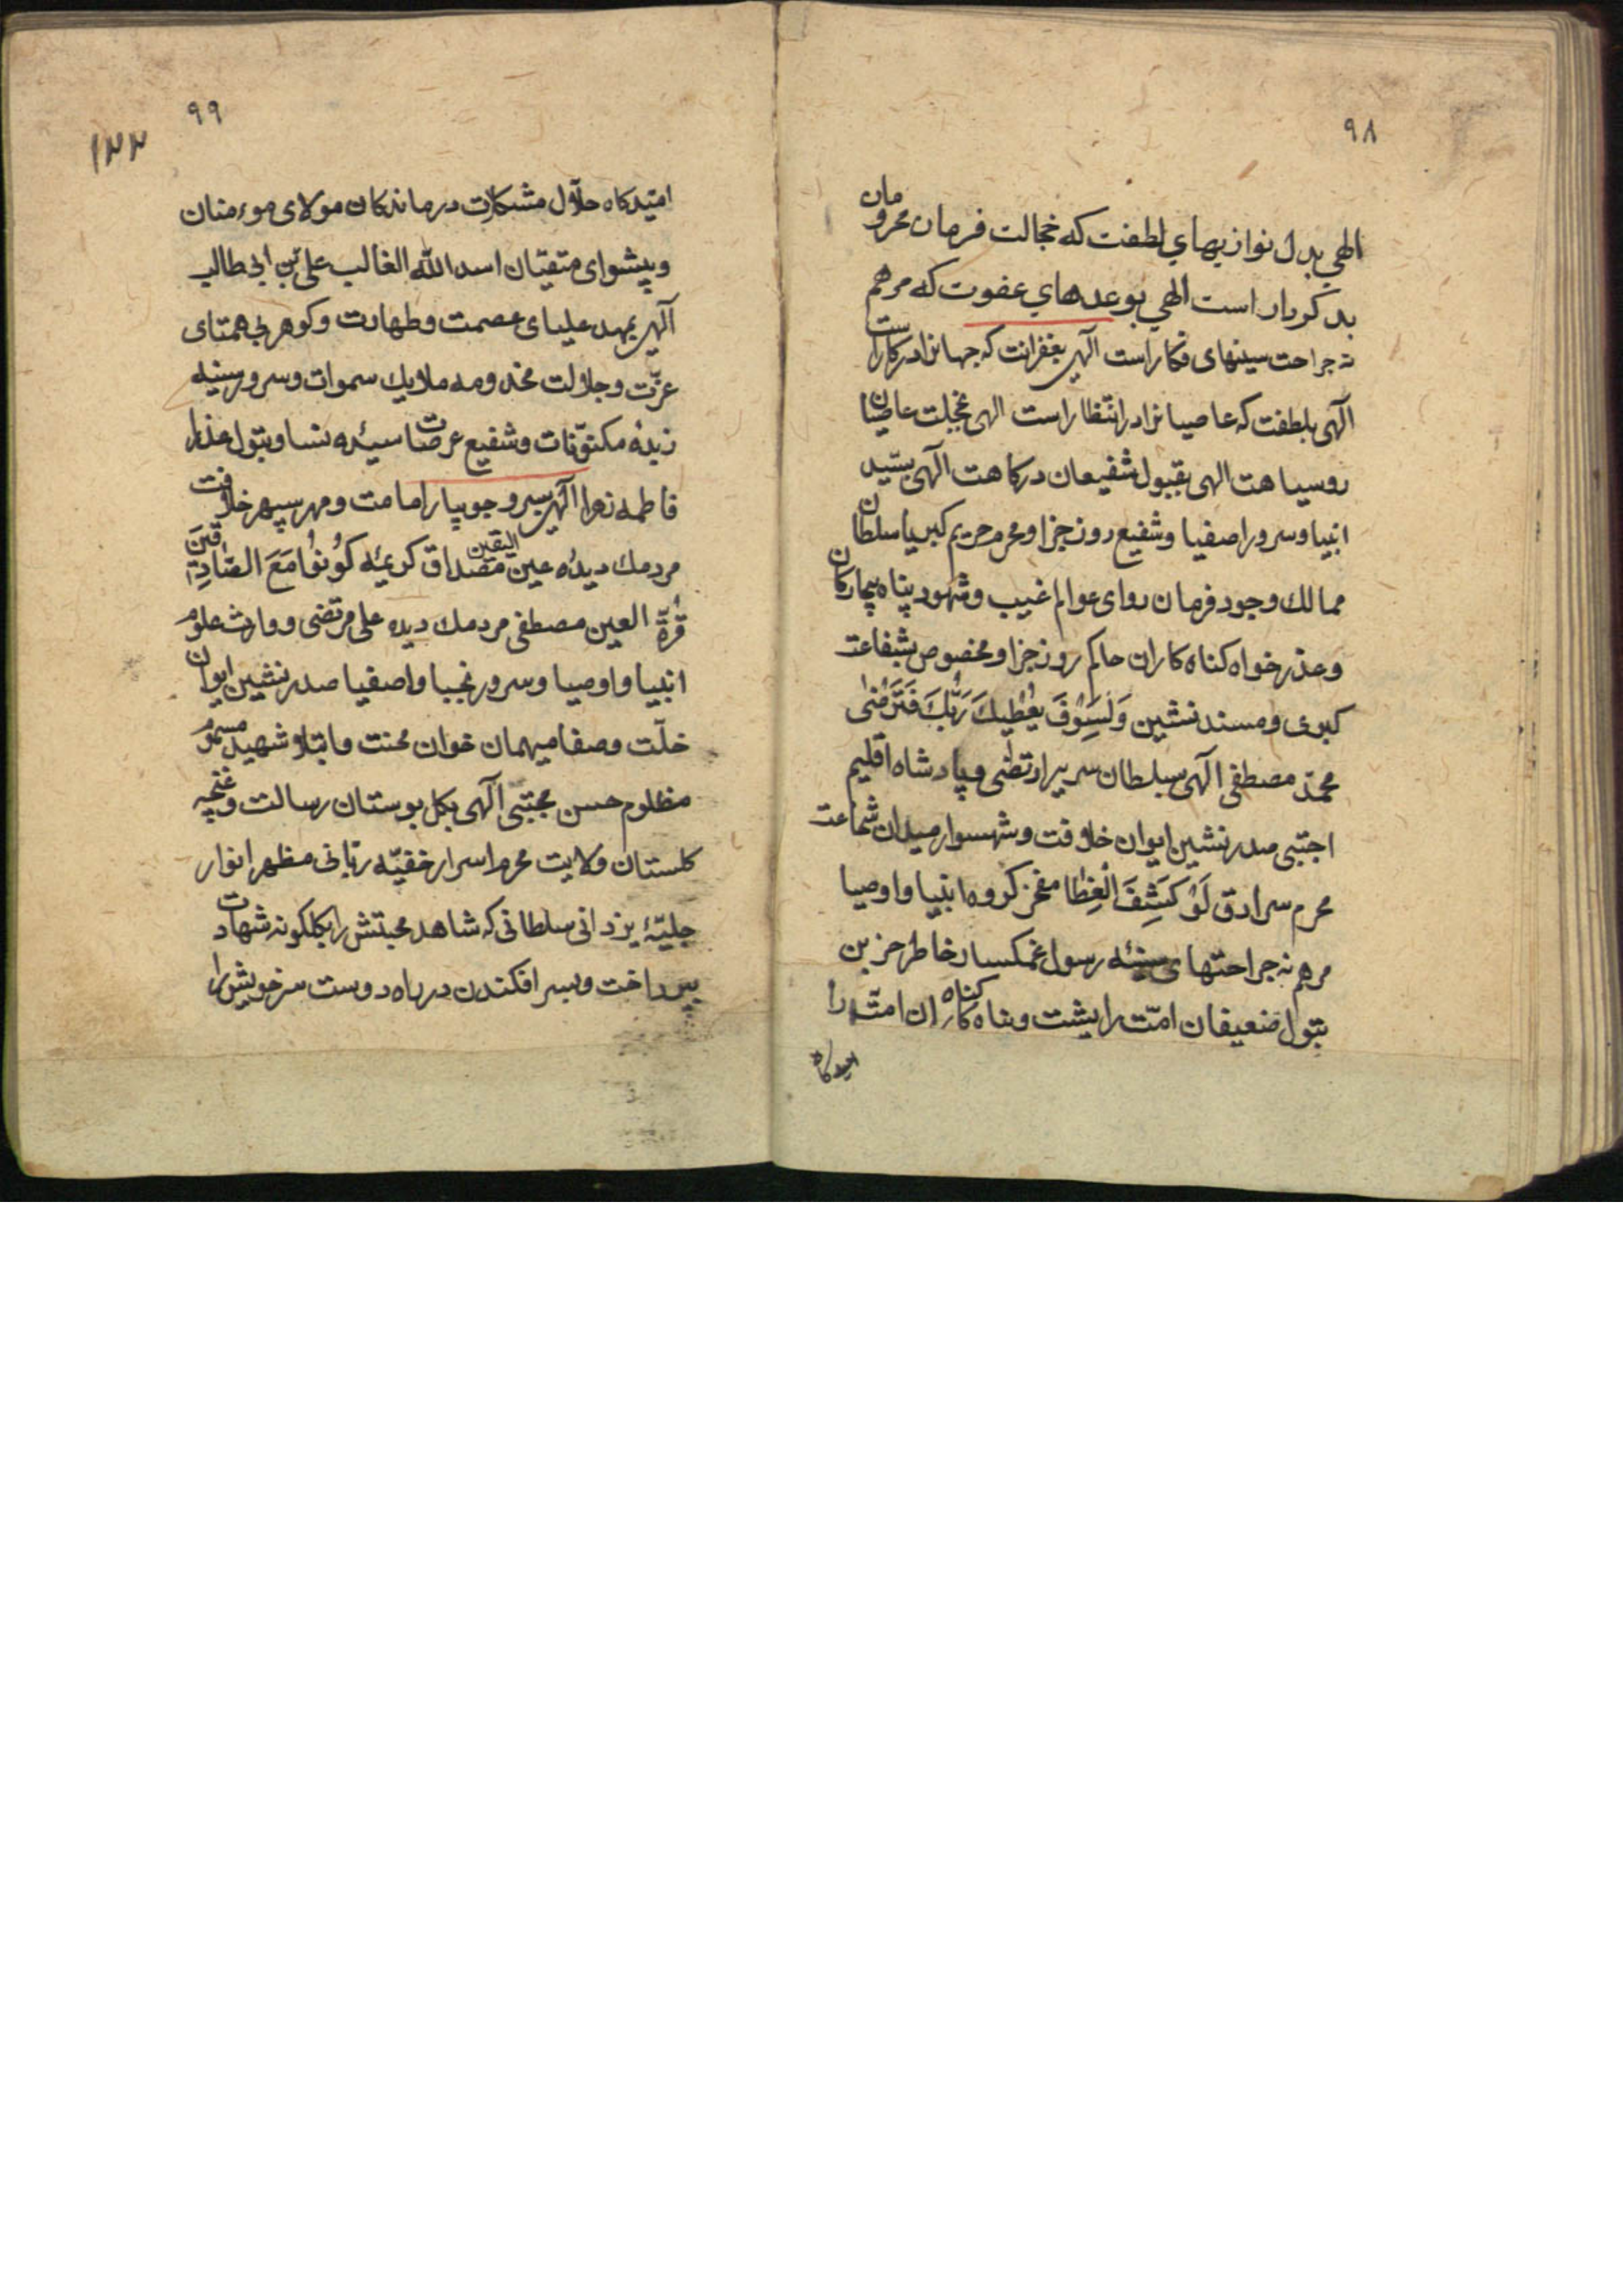 ۹۸
الهي بدل نوازیهاي لطفت که خجالت فرمان محرومان
بد کردار است الهي بوعدهاي عفوت که مرهم
نه جراحت سینهای فکار است الهی بغفرانت که جهانرا درکار است
الهی بلطفت که عاصیانرا در انتظار است الهی بخجلت عاصیان
روسیاهت الهی بقبول شفیعان درکاهت الهی بسیّد
انبیا و سرور اصفیا و شفیع روز جزا و محرم حریم کبریا سلطان
ممالك وجود فرمان روای عوالم غیب و شهود پناه بیچارکان
و عذر خواه کناه کاران حاکم روز جزا و مخصوص بشفاعت
کبری و مسند نشین وَلَسَوْفَ يُعْطِيكَ رَبُّكَ فَتَرْضٰى
محمّد مصطفی الهی بسلطان سریر ارتضی و پادشاه اقلیم
اجتبی صدر نشین ایوان خلافت و شهسوار میدان شجاعت
محرم سرادق لَوْ كَشِفَ الْغِطٰا مفخر کروه انبیا و اوصیا
مرهم نه جراحتهای سینه رسول غمکسار خاطر حزین
بتول ضعیفان امّت را پشت و پناه کناه کاران امّت را
امیدکاه
۹۹
۱۲۲
امّیدکاه حلّال مشکلات درماندکان مولای موءمنان
و پیشوای متقیّان اسد الله الغالب علی بن ابی طالب
الهی بمهد علیای عصمت و طهارت و کوهر بی همتای
عزّت و جلالت مخدومه ملایك سموات و سرور سینه
زبدهٔ مکنوّنات و شفیع عرصات سیدّه نسا و بتول عذرا
فاطمه زهرا الهی بسرو جویبار امامت و مهر سپهر خلافت
مردمك دیدهٔ عین الیقین مصداق کریمهٔ كُونُوا مَعَ الصّادِقينَ
قُرّة العین مصطفی مردمك دیده علی مرتضی و وارث علوم
انبیا و اوصیا و سرور نجبا و اصفیا صدر نشین ایوان
خلّت و صفا میهمان خوان محنت و ابتلا و شهید مسموم
مظلوم حسن مجتبی الهی بکل بوستان رسالت و غنچه
کلستان ولایت محرم اسرار خفیّه ربّانی مظهر انوار
جلیّهٔ یزدانی سلطانی که شاهد محبتش را بکلکونه شهادت
بپرداخت و بسر افکندن در راه دوست سر خویش را